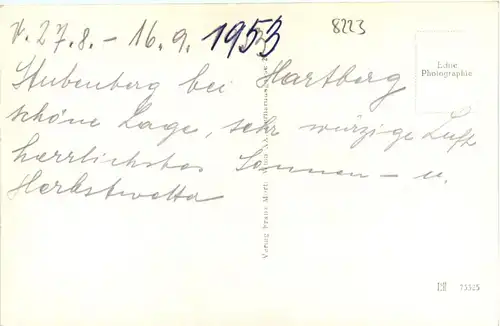 v. 27.8. – 16.9. 1953
8223
Echte
Photographie
Stubenberg bei Hartberg
schöne Lage, sehr würzige Luft
herrlichstes Sonnen – u.
Herbstwetter
Verlag Franz
73525